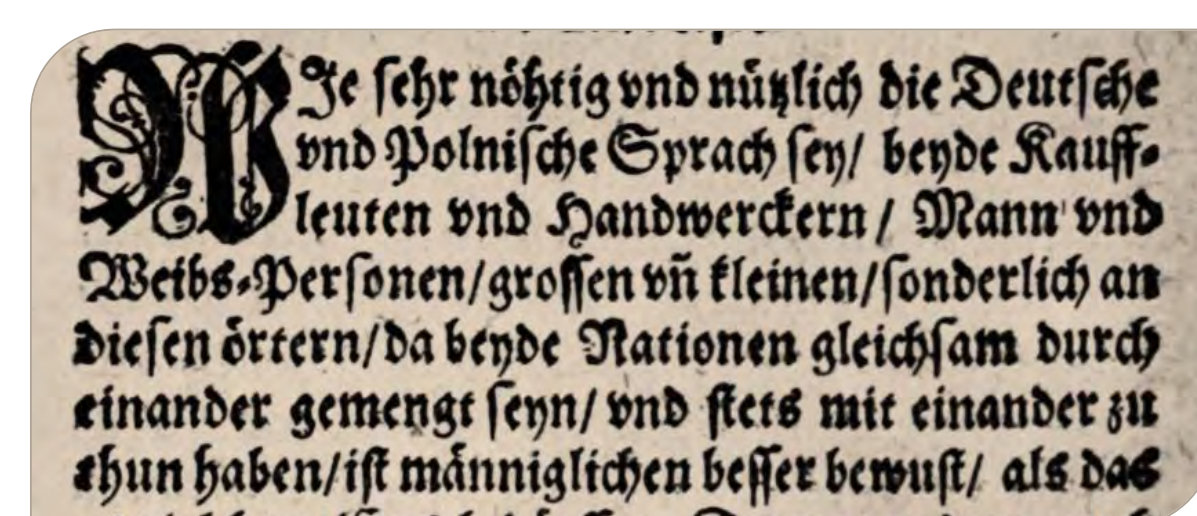 WIe ſehr nöhtig vnd nützlich die Deutſche
vnd Polniſche Sprach ſey/ beyde Kauff-
leuten vnd Handwerckern/ Mann vnd
Weibs-Perſonen/groſſen vñ kleinen/ſonderlich an
dieſen örtern/da beyde Nationen gleichſam durch
einander gemengt ſeyn/ vnd ſtets mit einander zu
thun haben/iſt männiglichen beſſer bewuſt/ als das